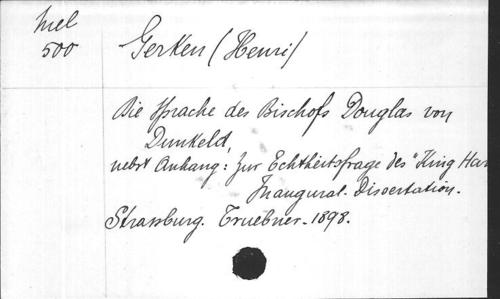 Mel
500
Gerken (Henri)
Die Sprache des Bischofs Douglas von
Dunkeld,
nebst Anhang: Zur Echtheitsfrage des "King Har
Inaugural-Dissertation.
Strassburg. Truebner. 1898.